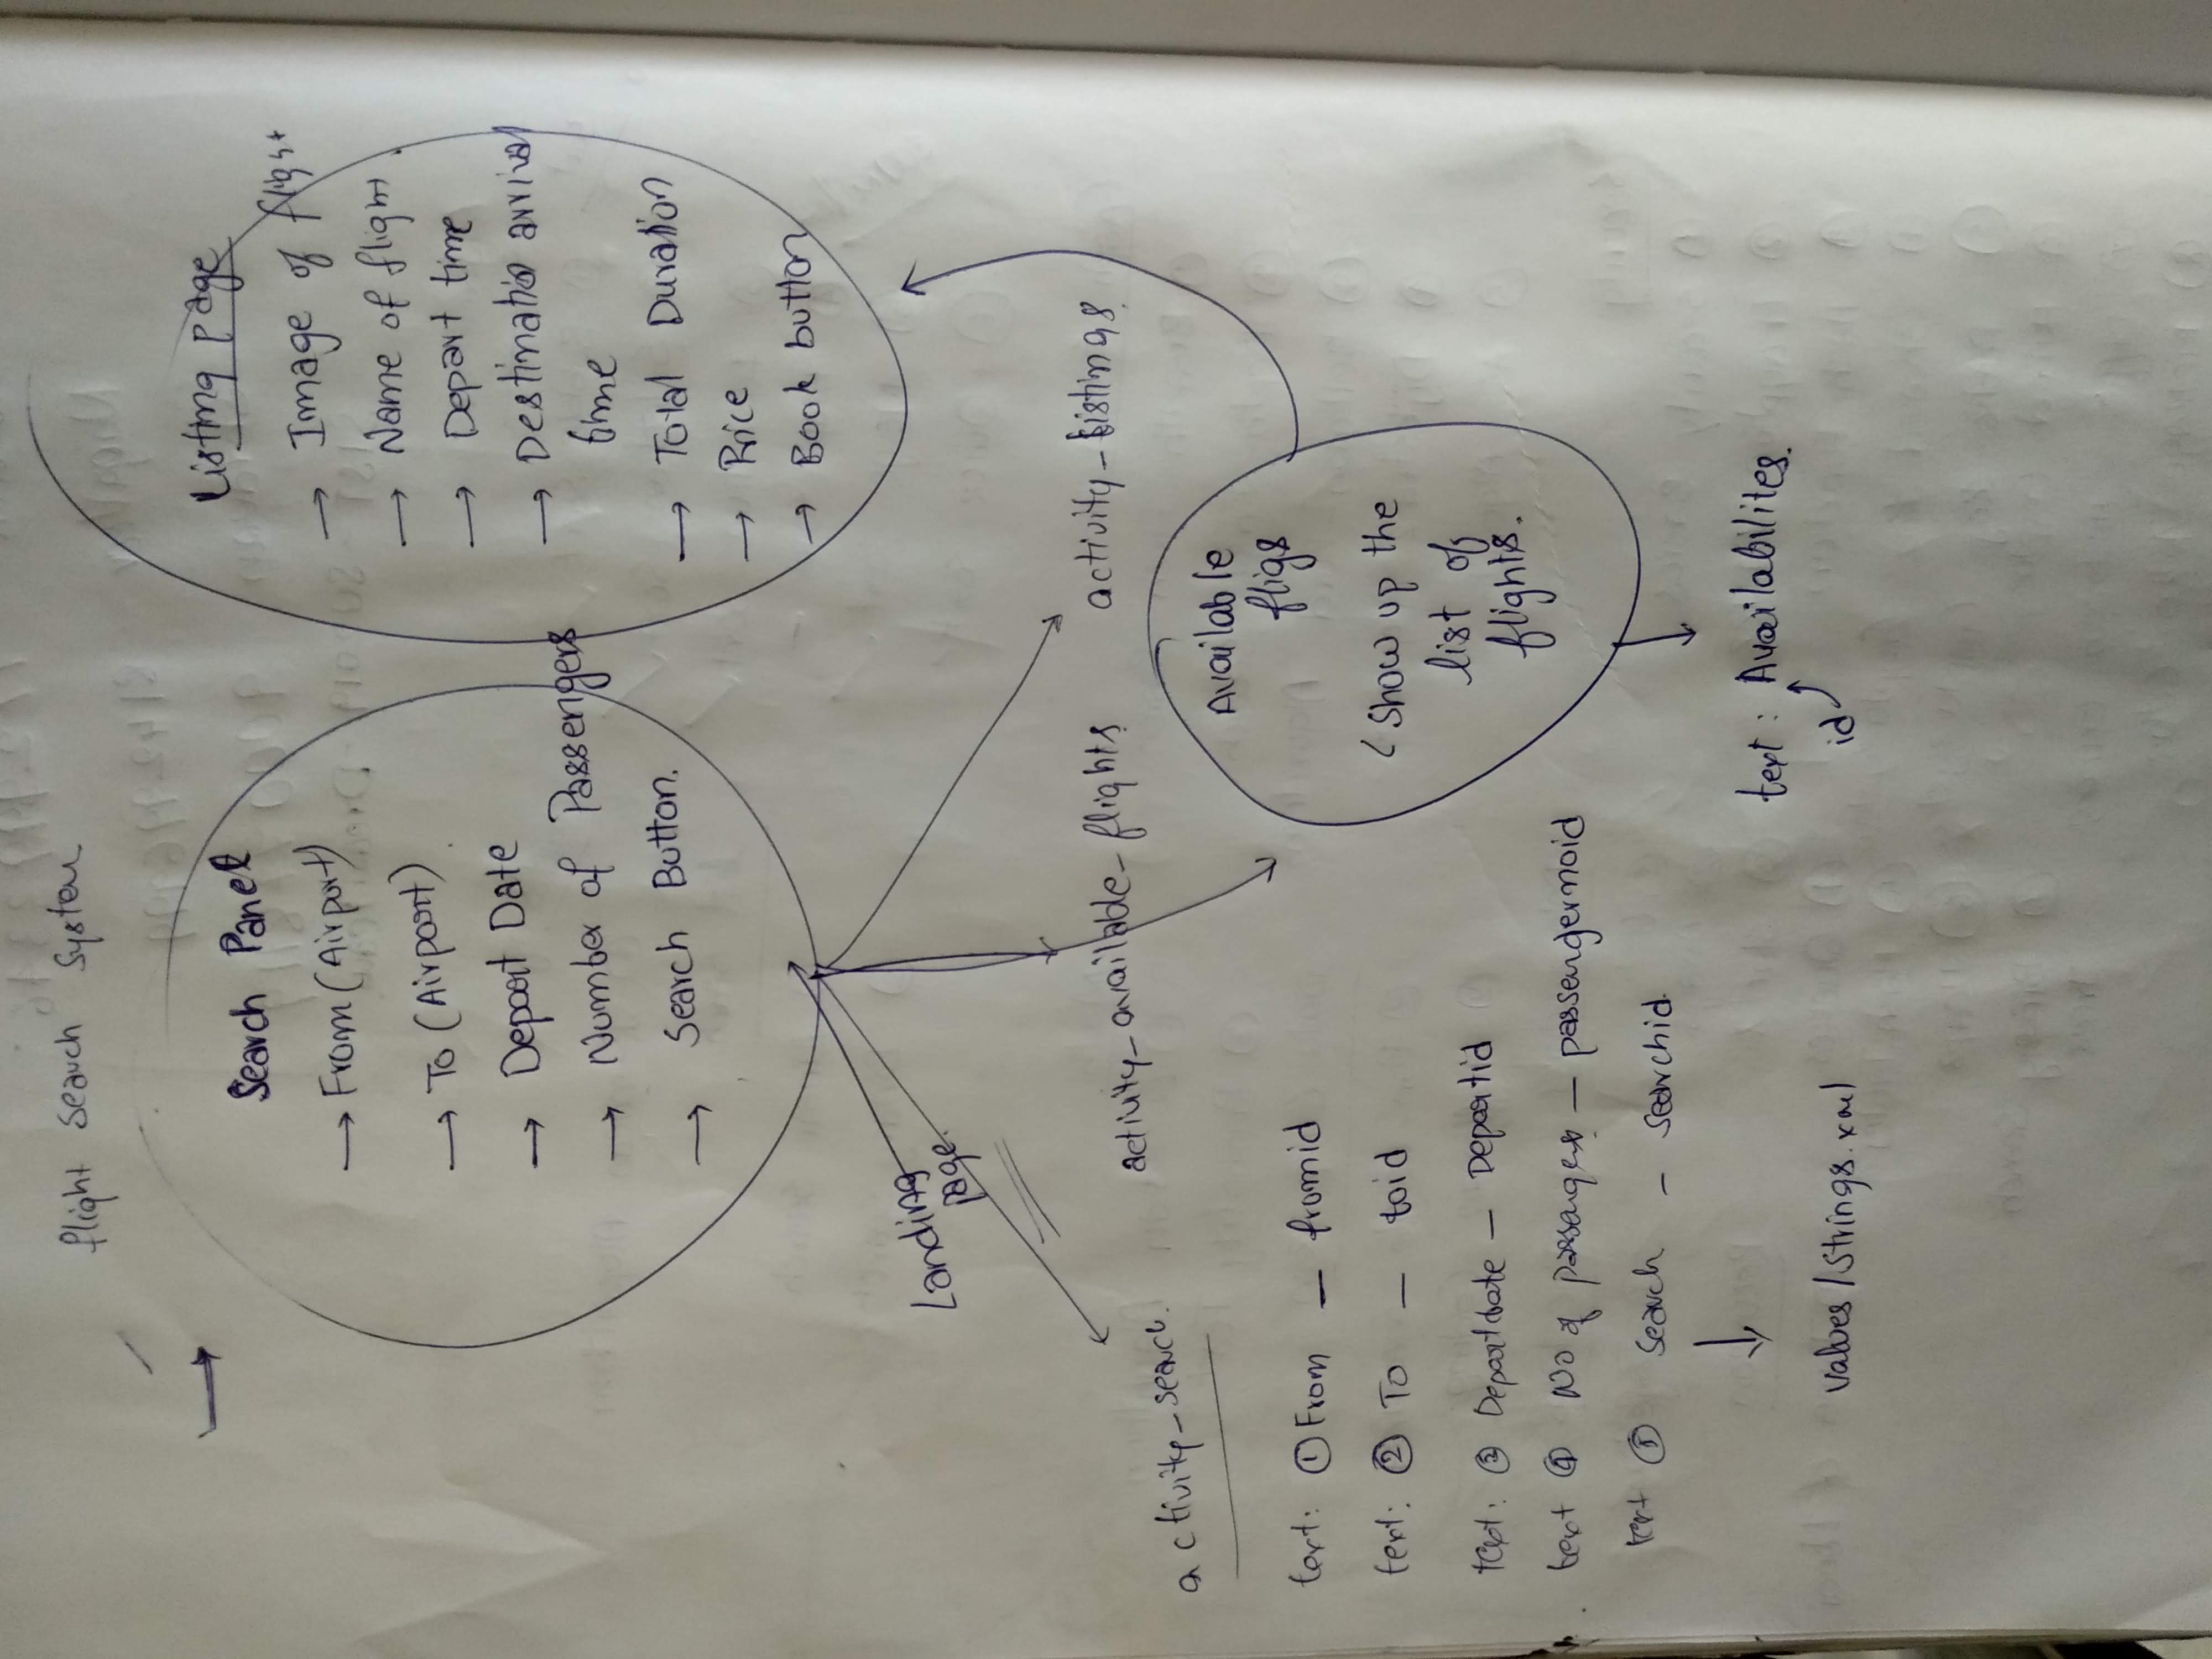 flight search system
Search Panel
→ From (Airport)
→ To (Airport)
→ Depart Date
→ Number of Passengers
→ Search Button.
Listing page
→ Image of flight
→ Name of flight
→ Depart time
→ Destination arrival
time
→ Total Duration
→ Price
→ Book button
Landing
page.
activity_search.
activity_available_flights
activity_listings
text: ① From — fromid
text: ② To — toid
text: ③ Departdate — Departid
text ④ No of passengers — passengernoid
text ⑤ search - searchid.
↓
values/strings.xml
Available
fligs
(Show up the
list of
flights.
text : Availabilites.
id